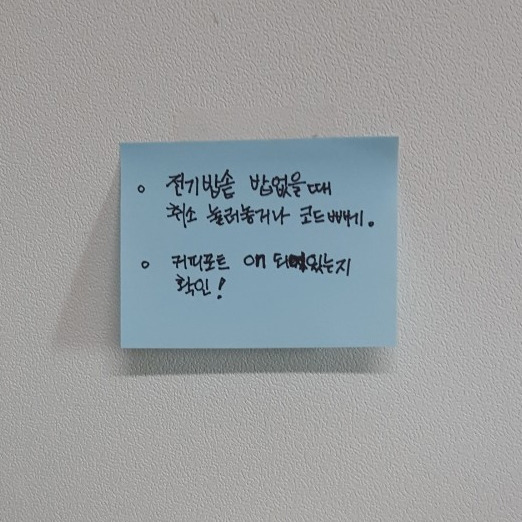 ○ 전기밥솥 밥없을때
취소 눌러놓거나 코드빼기.
○ 커피포트 on 되어있는지
확인!